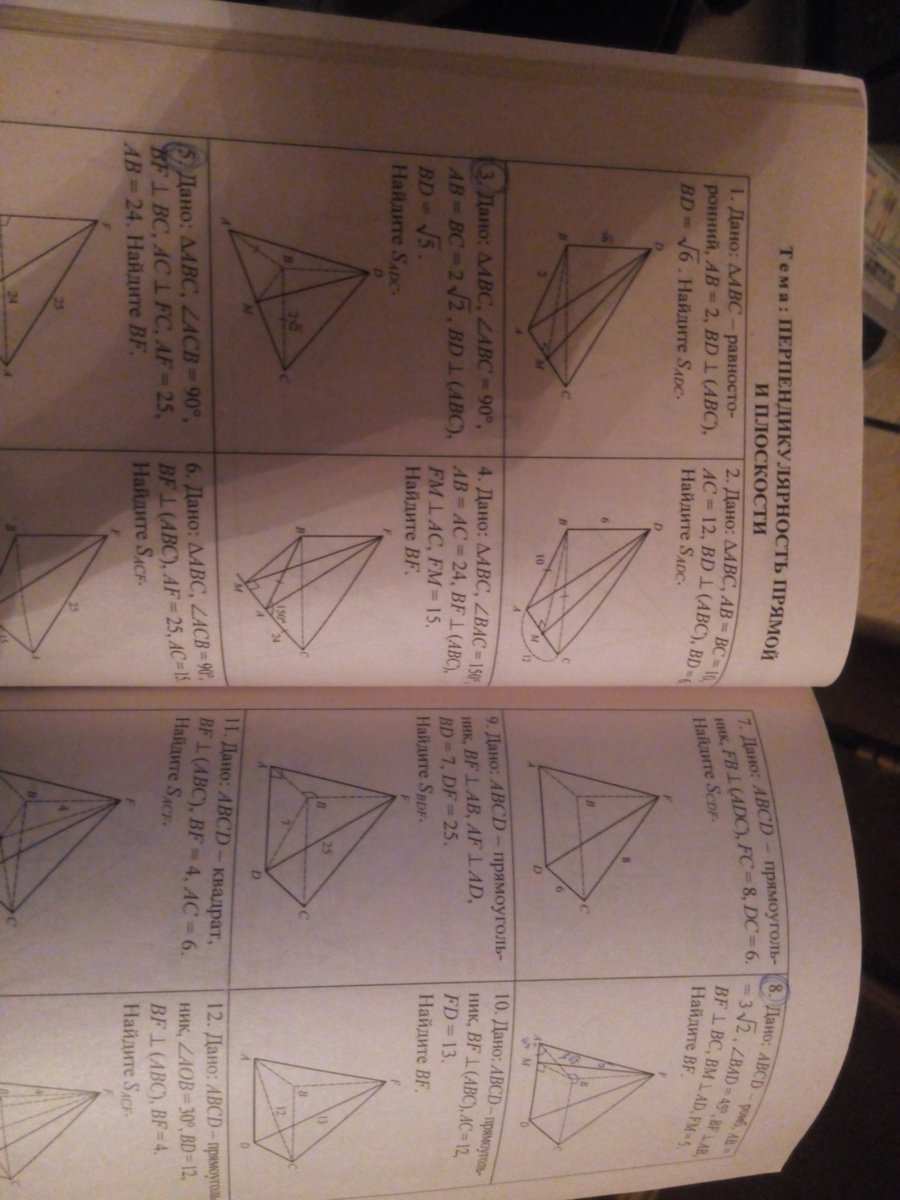 Тема: ПЕРПЕНДИКУЛЯРНОСТЬ ПРЯМОЙ
И ПЛОСКОСТИ
1. Дано: ΔABC – равносто-
ронний, AB = 2, BD ⊥ (ABC),
BD = √6. Найдите S_ADC.
D
√6
B
2
A
M
C
2. Дано: ΔABC, AB = BC = 10,
AC = 12, BD ⊥ (ABC), BD = 6
Найдите S_ADC.
D
6
B
10
A
M
C
12
3. Дано: ΔABC, ∠ABC = 90°,
AB = BC = 2√2, BD ⊥ (ABC),
BD = √5.
Найдите S_ADC.
D
B
2√2
A
M
C
4. Дано: ΔABC, ∠BAC = 150°
AB = AC = 24, BF ⊥ (ABC),
FM ⊥ AC, FM = 15.
Найдите BF.
F
B
M
A
150°
24
C
5. Дано: ΔABC, ∠ACB = 90°,
BF ⊥ BC, AC ⊥ FC, AF = 25,
AB = 24. Найдите BF.
F
25
24
A
6. Дано: ΔABC, ∠ACB = 90°,
BF ⊥ (ABC), AF = 25, AC = 15
Найдите S_ACF.
F
25
B
A
15
7. Дано: ABCD – прямоуголь-
ник, FB ⊥ (ADC), FC = 8, DC = 6.
Найдите S_CDF.
F
8
B
A
D
6
C
8. Дано: ABCD – ромб, AB =
= 3√2, ∠BAD = 45°, BF ⊥ AB,
BF ⊥ BC, BM ⊥ AD, FM = 5.
Найдите BF.
F
5
B
A
45°
M
D
C
9. Дано: ABCD – прямоуголь-
ник, BF ⊥ AB, AF ⊥ AD,
BD = 7, DF = 25.
Найдите S_BDF.
F
25
B
7
A
D
C
10. Дано: ABCD – прямоуголь-
ник, BF ⊥ (ABC), AC = 12,
FD = 13.
Найдите BF.
F
13
B
12
A
D
C
11. Дано: ABCD – квадрат,
BF ⊥ (ABC), BF = 4, AC = 6.
Найдите S_ACF.
F
4
B
C
12. Дано: ABCD – прямоуголь
ник, ∠AOB = 30°, BD = 12,
BF ⊥ (ABC), BF = 4.
Найдите S_ACF.
F
4
B
C